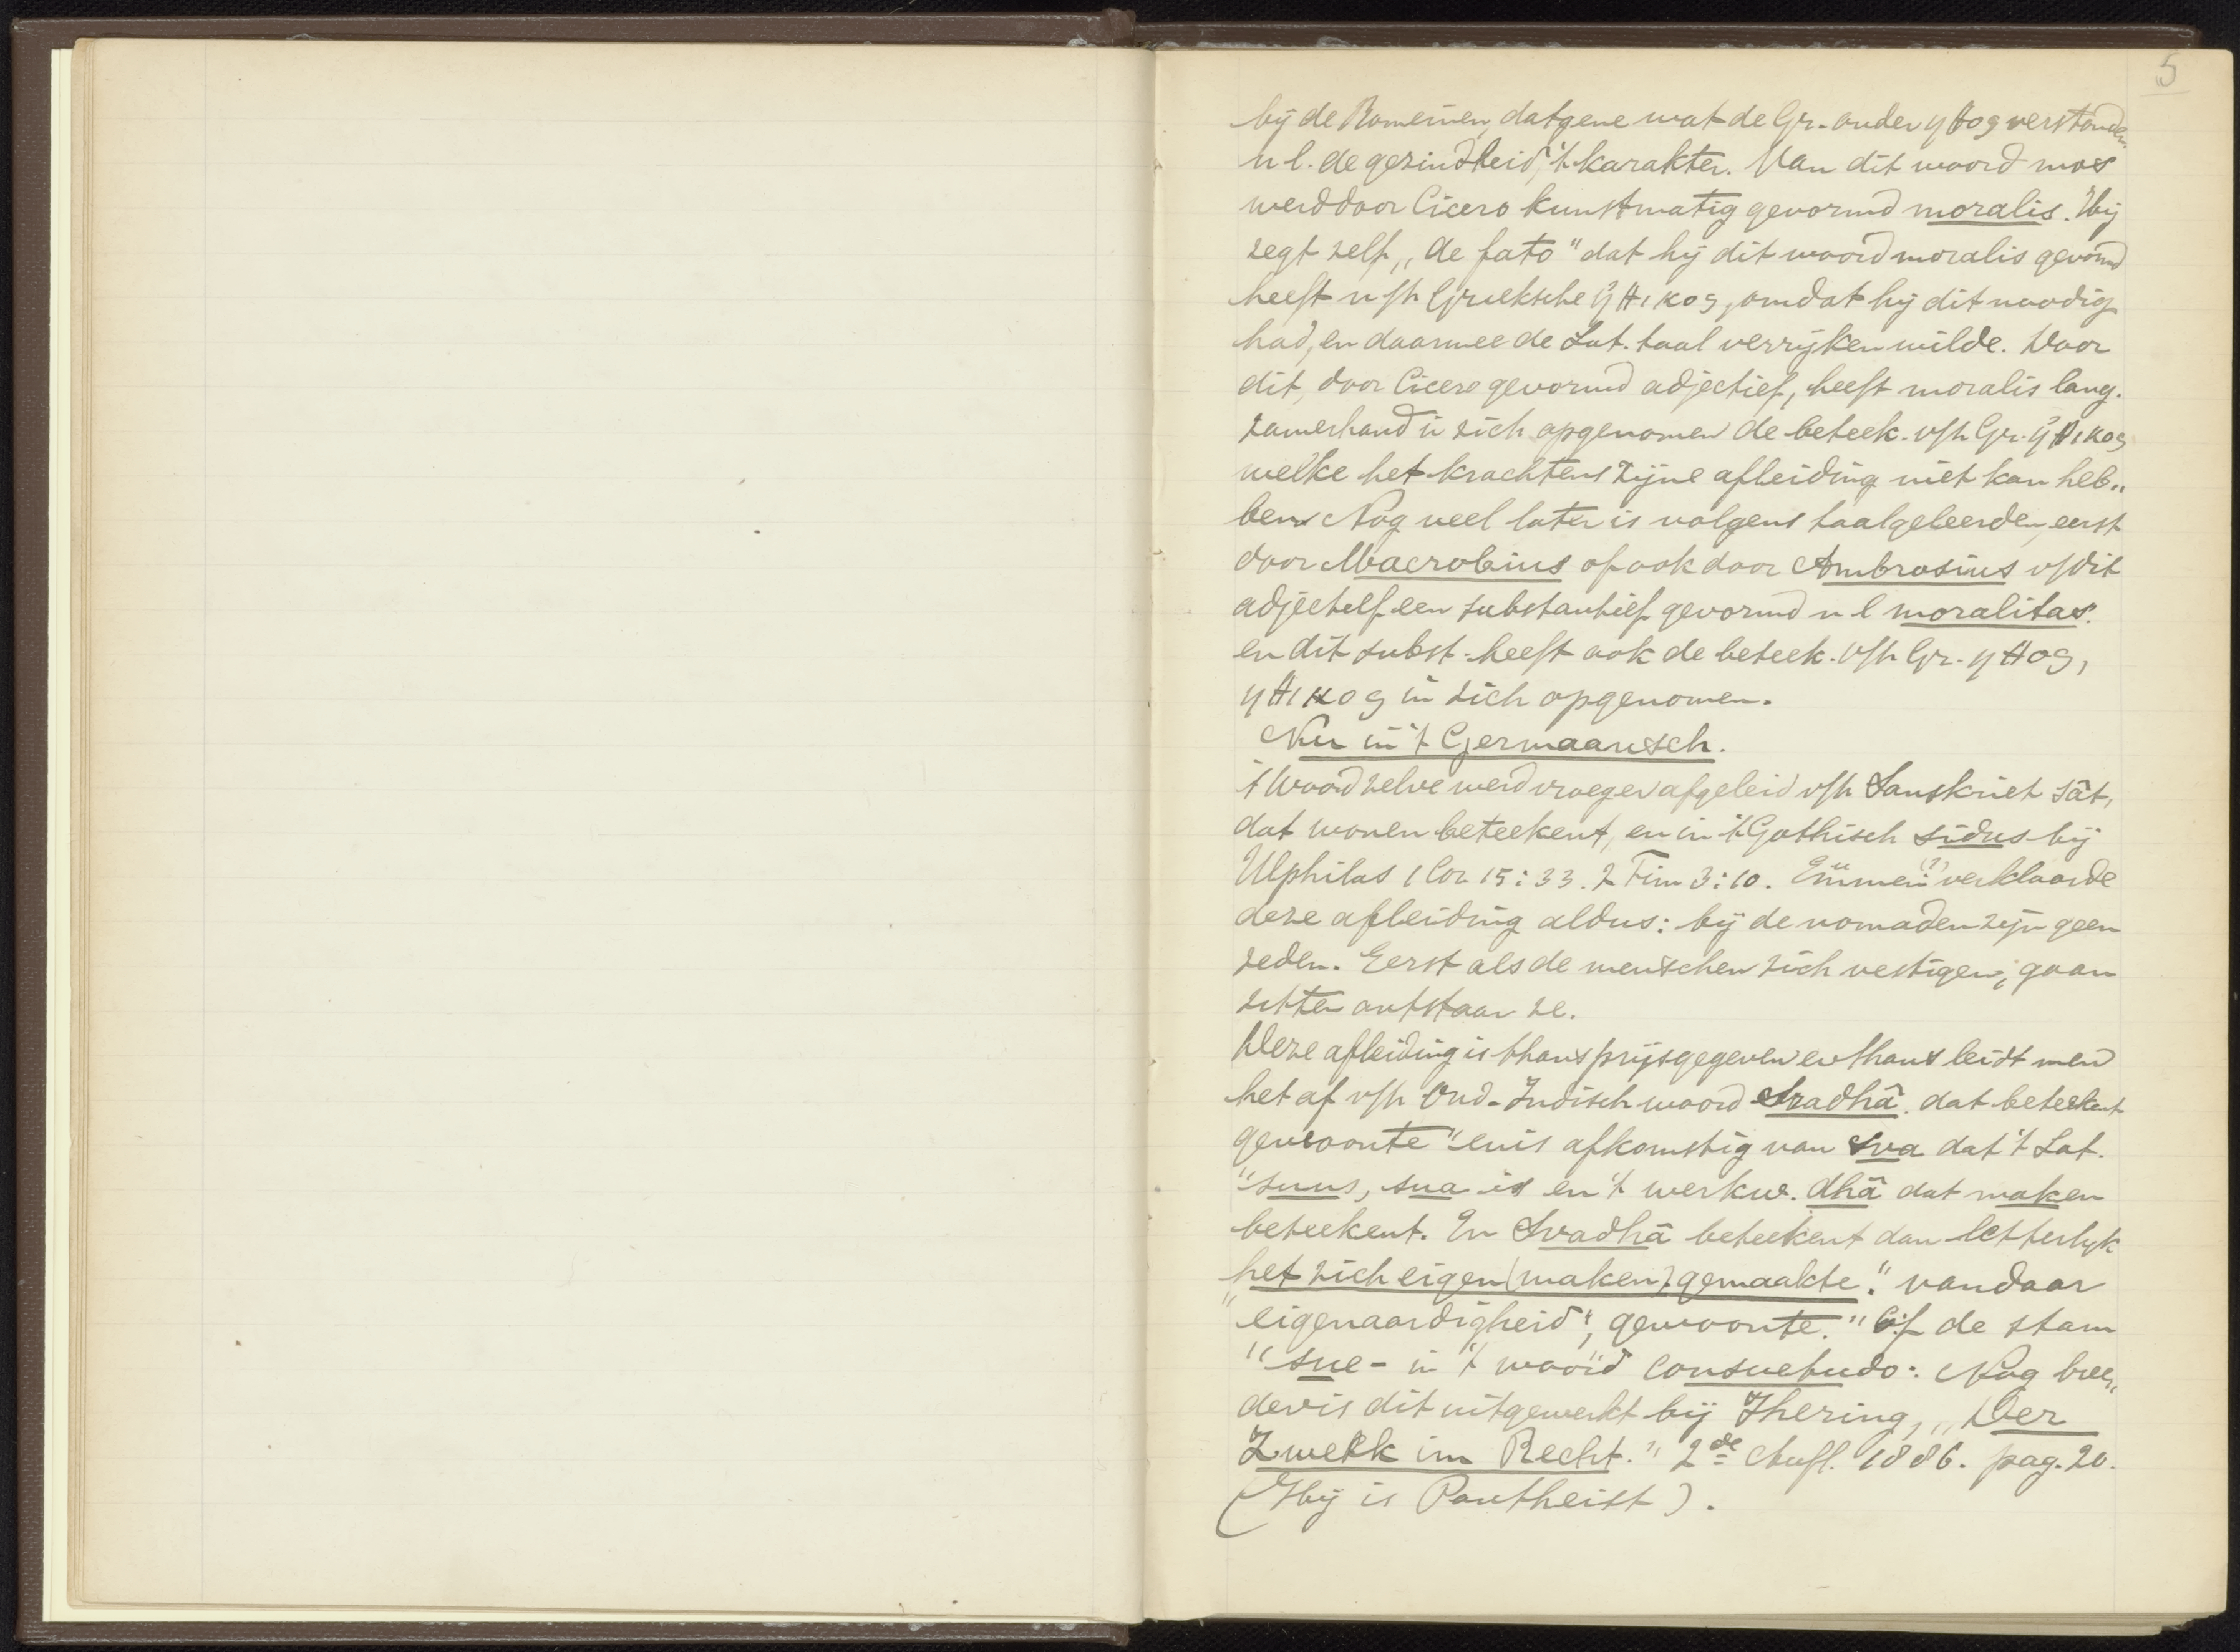 5
bij de Romeinen, datgene wat de Gr. onder ηθος verstonden
n.l. de gezindheid, 't karakter. Van dit woord mos
werd door Cicero kunstmatig gevormd moralis. Hij
zegt zelf „de fato" dat hij dit woord moralis gevormd
heeft v/h Grieksche ἠθικος, omdat hij dit noodig
had, en daarmee de Lat. taal verrijken wilde. Door
dit, door Cicero gevormd adjectief, heeft moralis lang-
zamerhand in zich opgenomen de beteek. v/h Gr. ἠθικος
welke het krachtens zijne afleiding niet kan heb„
ben. Nog veel later is volgens taalgeleerden, eerst
door Macrobius of ook door Ambrosius v/dit
adjectief een substantief gevormd n l moralitas.
en dit subst. heeft ook de beteek. v/h Gr. ηθος,
ηθικος in zich opgenomen.
Nu in 't Germaansch.
't Woord zelve werd vroeger afgeleid v/h Sanskriet sât,
dat wonen beteekent, en in 't Gothisch sidus bij
Ulphilas 1 Cor 15:33. 2 Tim 3:10. (?) verklaarde
deze afleiding aldus: bij de nomaden zijn geen
zeden. Eerst als de menschen zich vestigen, gaan
zitten ontstaan ze.
Deze afleiding is thans prijsgegeven en thans leidt men
het af v/h Oud-Indisch woord Svadhâ. dat beteekent
gewoonte" en is afkomstig van sva dat 't Lat.
"suus, sua is en 't werkw. dhâ dat maken
beteekent. En Svadhâ beteekent dan letterlyk
„het zich eigen (maken) gemaakte." vandaar
"eigenaardigheid", gewoonte." Cf de stam
"sue- in 't woord consuetudo: Nog bree„
der is dit uitgewerkt bij Jhering, „Der
Zweck im Recht." 2de Aufl. 1886. pag. 20.
(Hij is Pantheist).